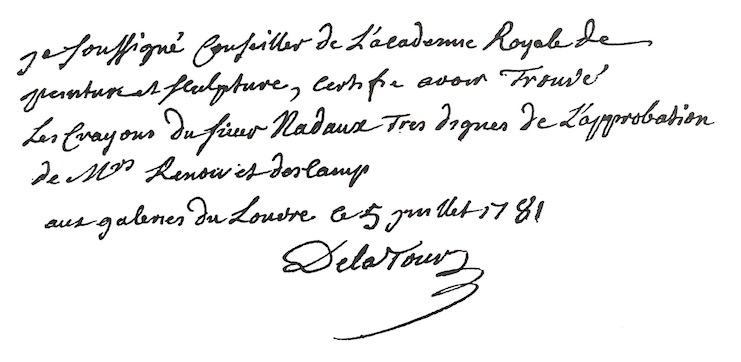 je soussigné Conseiller de L'académie Royale de
peinture et sculpture, certifie avoir Trouvé
Les Crayons du sieur Nadaux Tres dignes de L'approbation
de Mrs Renou et descamp
aux galeries du Louvre ce 5 juillet 1781
De la Tour